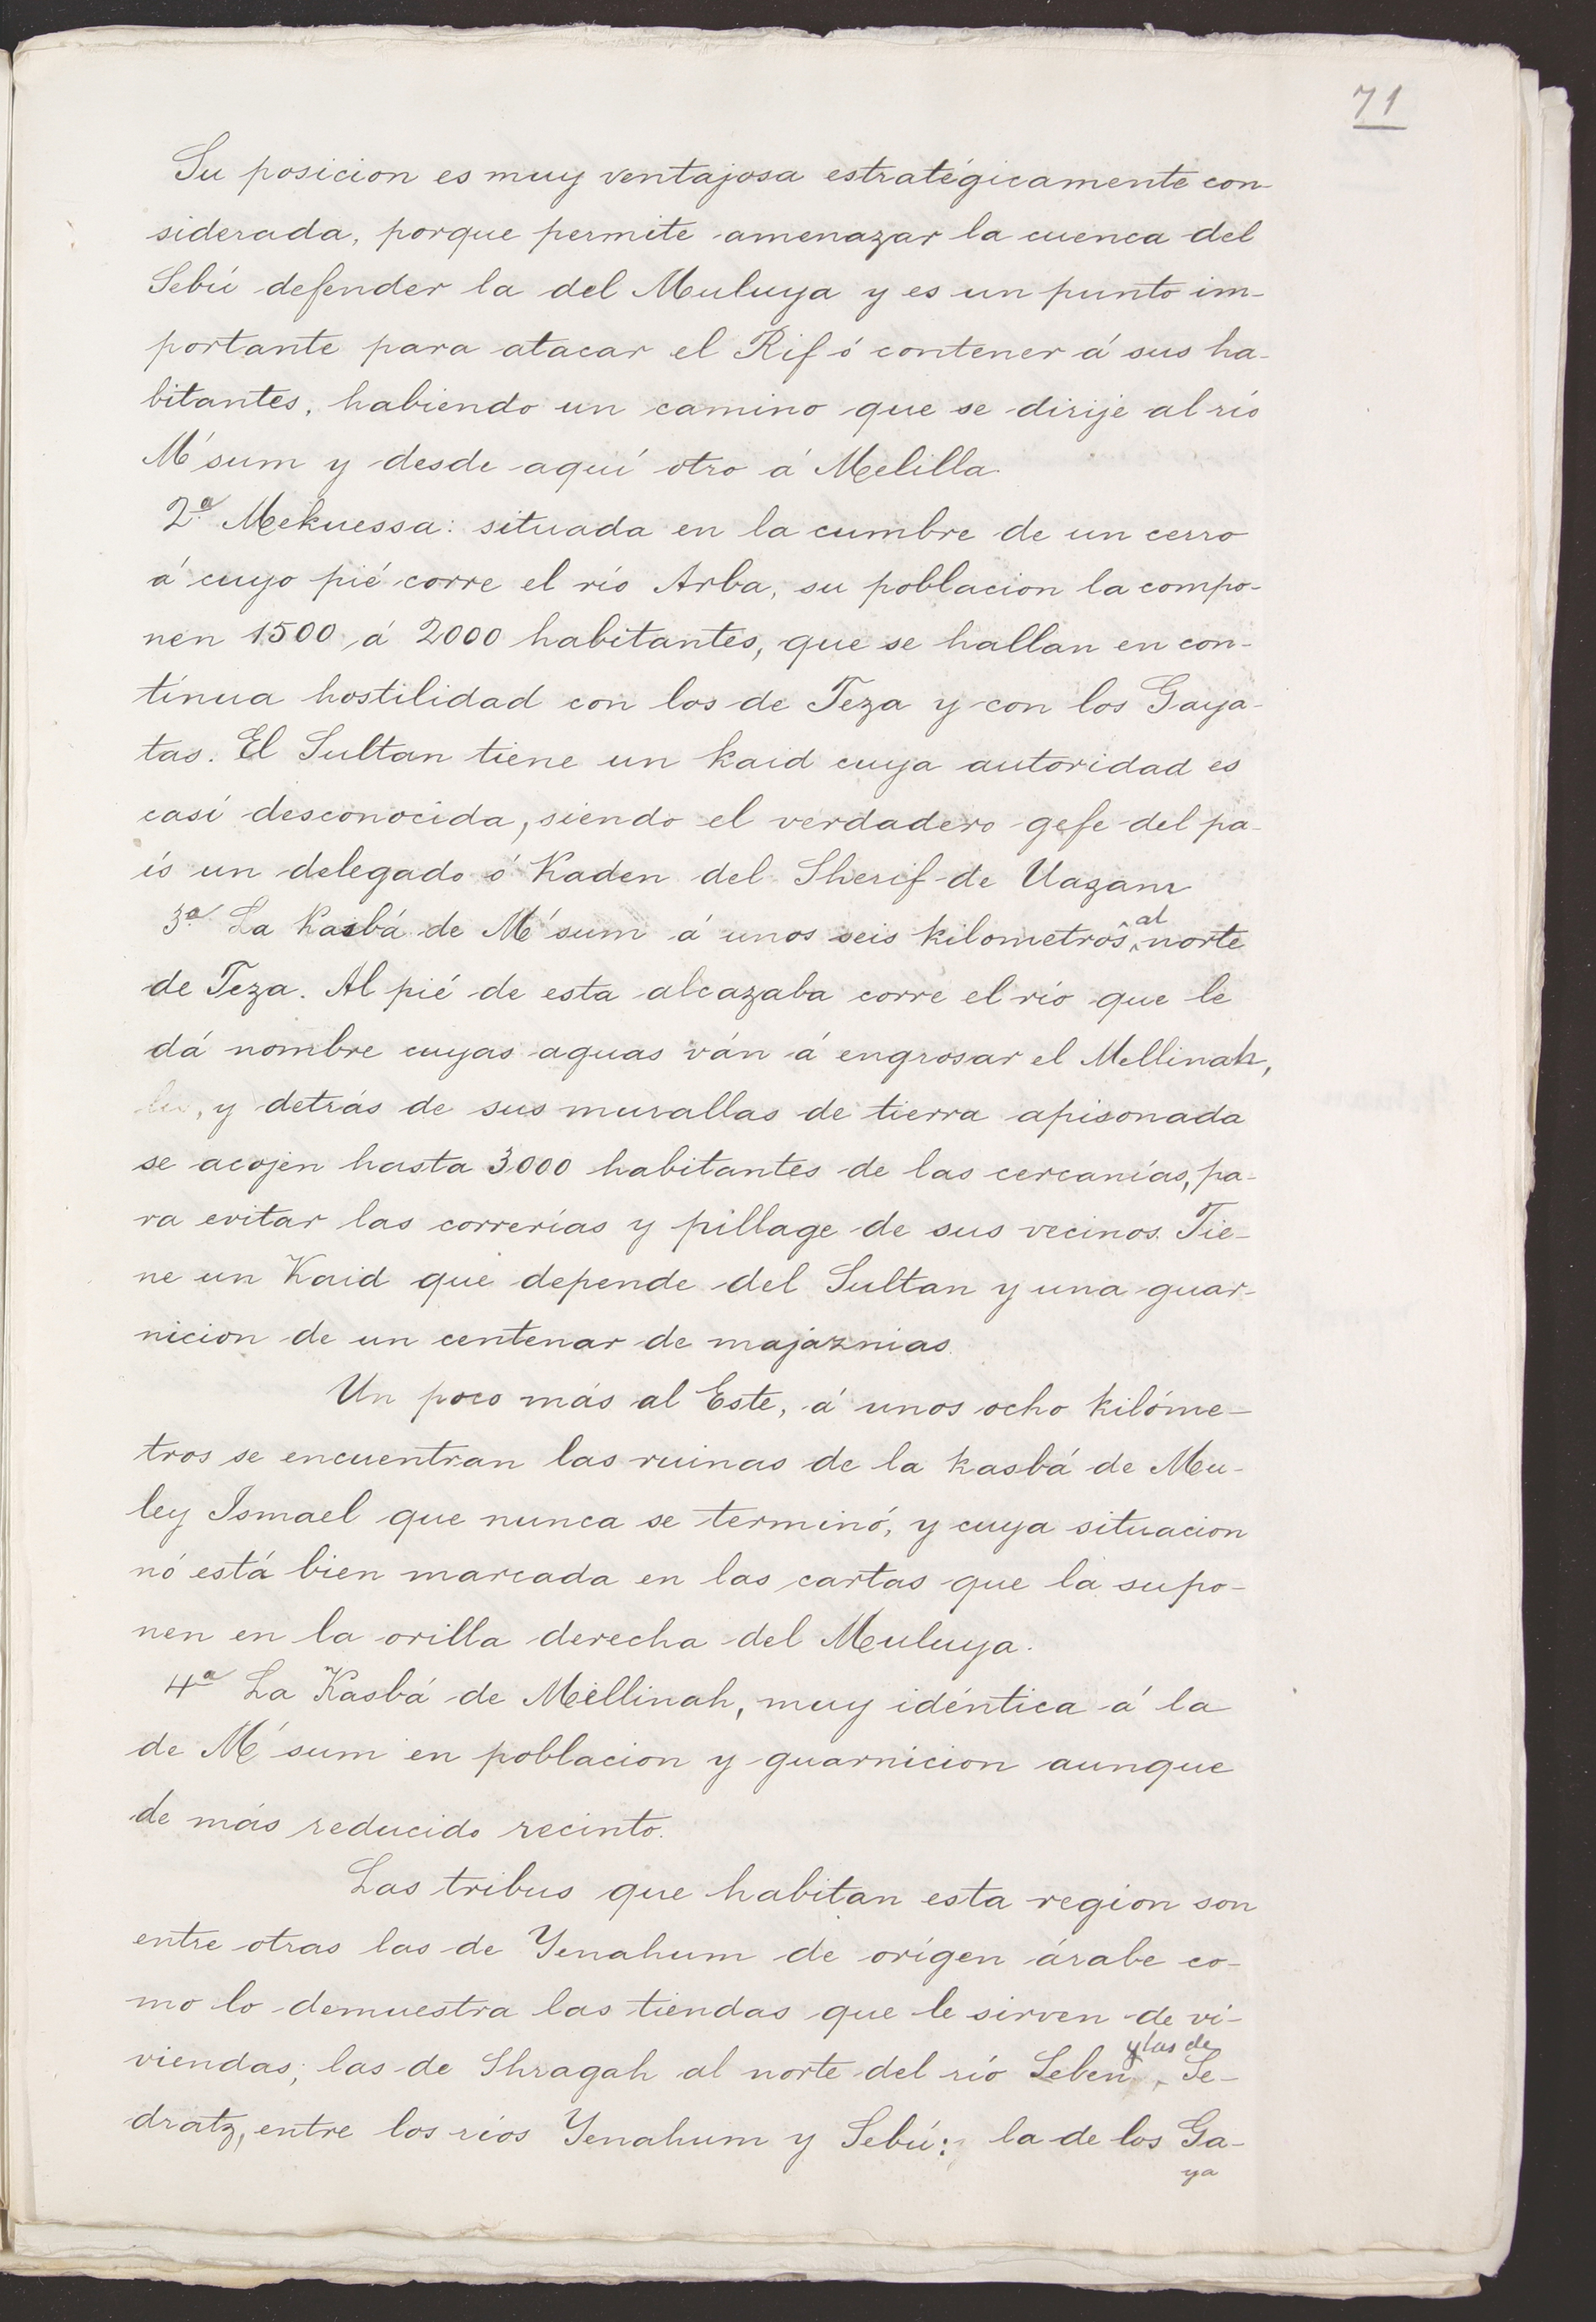 71
Su posicion es muy ventajosa estratégicamente con-
siderada, porque permite amenazar la cuenca del
Sebú defender la del Muluya y es un punto im-
portante para atacar el Rif ó contener á sus ha-
bitantes, habiendo un camino que se dirije al río
M'sum y desde aquí otro á Melilla.
2ª Mekuessa: situada en la cumbre de un cerro
á cuyo pié corre el río Arba, su poblacion la compo-
nen 1500 á 2000 habitantes, que se hallan en con-
tínua hostilidad con los de Teza y con los Gaya-
tas. El Sultan tiene un kaid cuya autoridad es
casi desconocida, siendo el verdadero gefe del pa-
ís un delegado ó Kaden del Sherif de Uazan
3ª La Kasbá de M'sum á unos seis kilometros al norte
de Teza. Al pié de esta alcazaba corre el río que le
dá nombre cuyas aguas ván á engrosar el Mellinah,
, y detrás de sus murallas de tierra apisonada
se acojen hasta 3000 habitantes de las cercanías, pa-
ra evitar las correrías y pillage de sus vecinos. Tie-
ne un Kaid que depende del Sultan y una guar-
nicion de un centenar de majaznias.
Un poco más al Este, á unos ocho kilóme-
tros se encuentran las ruinas de la kasbá de Mu-
ley Ismael que nunca se terminó, y cuya situacion
nó está bien marcada en las cartas que la supo-
nen en la orilla derecha del Muluya.
4ª La Kasbá de Mellinah, muy idéntica á la
de M'sum en poblacion y guarnicion aunque
de más reducido recinto.
Las tribus que habitan esta region son
entre otras las de Yenahum de orígen árabe co-
mo lo demuestra las tiendas que le sirven de vi-
viendas; las de Shragah al norte del río Leben y las de Se-
dratz, entre los ríos Yenahum y Sebú: la de los Ga-
ya